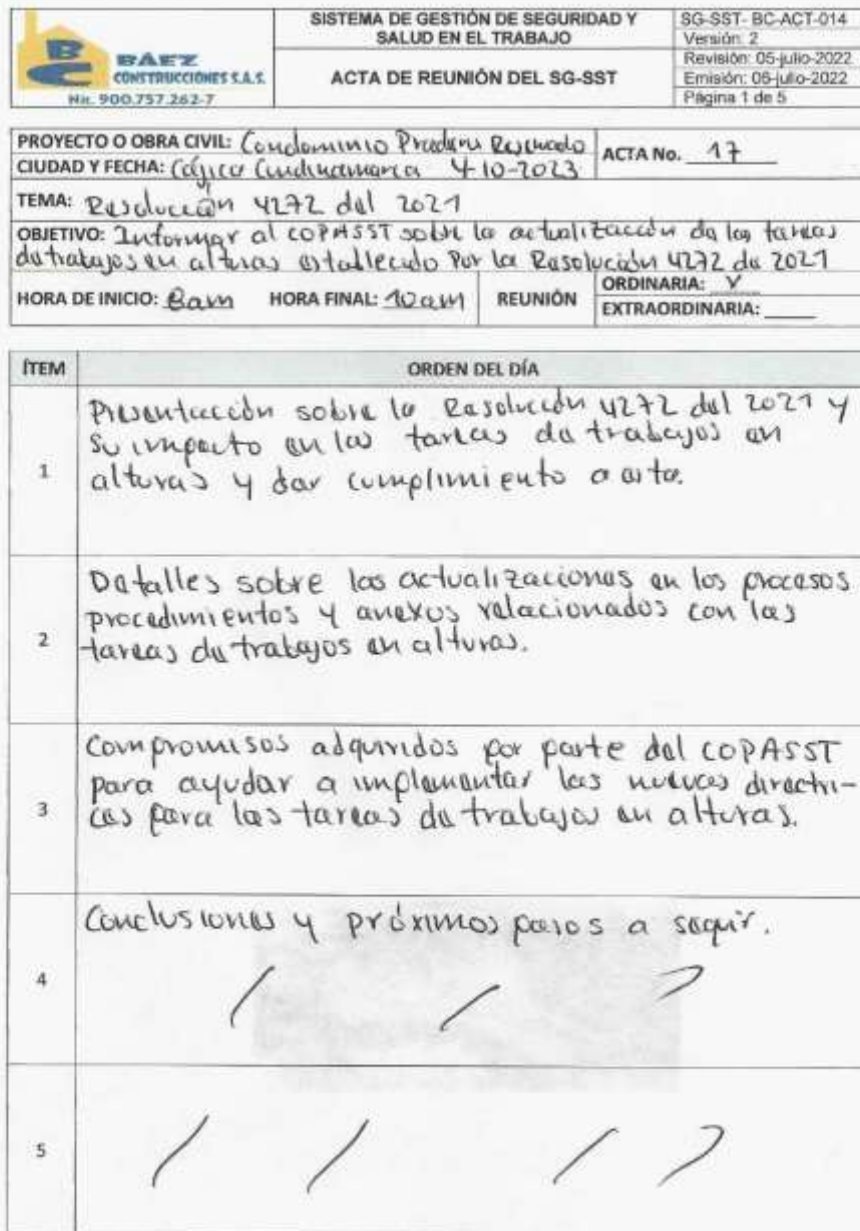 SISTEMA DE GESTIÓN DE SEGURIDAD Y
SALUD EN EL TRABAJO
SG-SST- BC-ACT-014
Versión: 2
Revisión: 05-julio-2022
BC
BÁEZ
CONSTRUCCIONES S.A.S.
Nit. 900.757.262-7
ACTA DE REUNIÓN DEL SG-SST
Emisión: 06-julio-2022
Página 1 de 5
PROYECTO O OBRA CIVIL: Condominio Pradera Reservado
ACTA No. 17
CIUDAD Y FECHA: Cajica Cundinamarca 4-10-2023
TEMA: Resolución 4272 del 2021
OBJETIVO: Informar al COPASST sobre la actualización de las tareas
de trabajos en alturas establecido Por la Resolución 4272 de 2021
HORA DE INICIO: 8am HORA FINAL: 10am REUNIÓN ORDINARIA: X
EXTRAORDINARIA:
ÍTEM ORDEN DEL DÍA
1
Presentación sobre la Resolución 4272 del 2021 y
su impacto en las tareas de trabajos en
alturas y dar cumplimiento a esta.
2
Detalles sobre las actualizaciones en los procesos
procedimientos y anexos relacionados con las
tareas de trabajos en alturas.
3
Compromisos adquiridos por parte del COPASST
para ayudar a implementar las nuevas directri-
ces para las tareas de trabajos en alturas.
4
Conclusiones y próximos pasos a seguir.
5